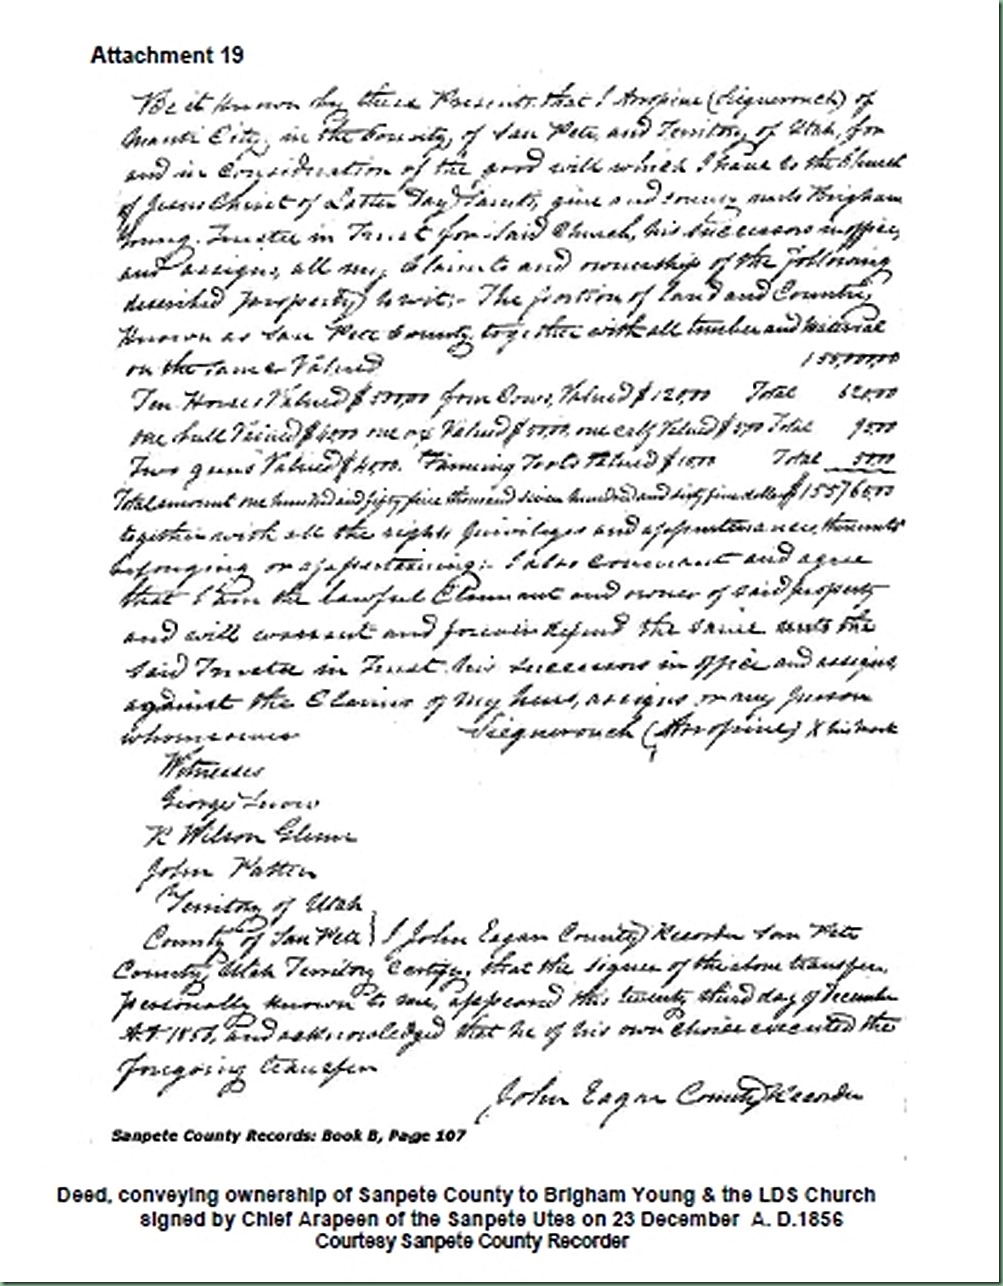 Attachment 19
Be it Known by these Presents that I Arropine (Siegnerouch) of
Manti City, in the County of San Pete, and Territory of Utah, for
and in Consideration of the good will which I have to the Church
of Jesus Christ of Latter Day Saints, give and convey unto Brigham
Young, Trustee in Trust for Said Church, his successors in office,
and assigns, all my Claims to and ownership of the following
described property, to wit;- The portion of land and Country,
Known as San Pete County together with all timber and Material
on the same Valued 155,000,00
Ten Horses Valued $ 500,00 four Cows, Valued $ 120,00 Total 620,00
one bull Valued $ 40,00 one ox Valued $ 50,00, one calf Valued $ 5,00 Total 95,00
Two guns Valued $ 40,00. Farming Tools Valued $ 10,00 Total 50,00
Total amount one hundred and fifty five thousand seven hundred and sixty five dollars $ 155765,00
together with all the rights privileges and appurtenances, thereunto
belonging or appertaining:- I also covenant and agree
that I am the lawful Claimant and owner of said property
and will warrant and forever defend the same unto the
said Trustee in Trust. his successors in office and assigns,
against the Claims of my heirs, assigns, or any person
whomsoever Siegnerouch (Arropine) X his mark
Witnesses
George Snow
R Wilson Glenn
John Patten
Territory of Utah
County of San Pete } I John Eagar County Recorder San Pete
County, Utah Territory Certify, that the signer of the above transfer,
personally known to me, appeared this twenty third day of December
A.D. 1856, and acknowledged that he of his own choice executed the
foregoing transfer
John Eagar County Recorder
Sanpete County Records: Book B, Page 107
Deed, conveying ownership of Sanpete County to Brigham Young & the LDS Church
signed by Chief Arapeen of the Sanpete Utes on 23 December A. D.1856
Courtesy Sanpete County Recorder